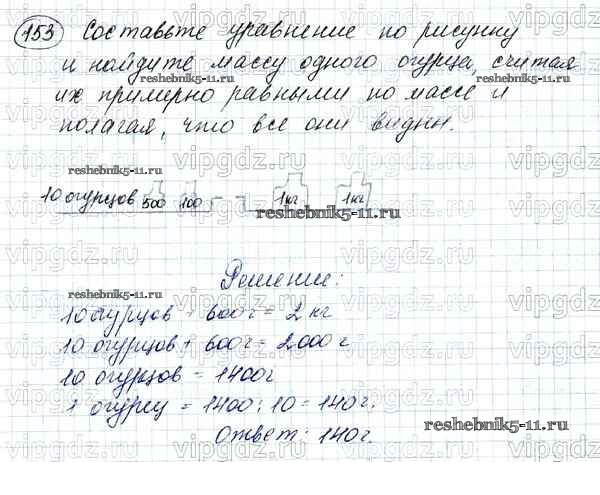 153 Составьте уравнение по рисунку
и найдите массу одного огурца, считая
их примерно равными по массе и
полагая, что все они видны.
reshebnik5-11.ru
10 огурцов 500 100 1кг 1кг
reshebnik5-11.ru
Решение:
reshebnik5-11.ru
10 огурцов + 600г = 2 кг
10 огурцов + 600г = 2000 г
10 огурцов = 1400г
1 огурец = 1400 : 10 = 140г.
reshebnik5-11.ru
Ответ: 140г.